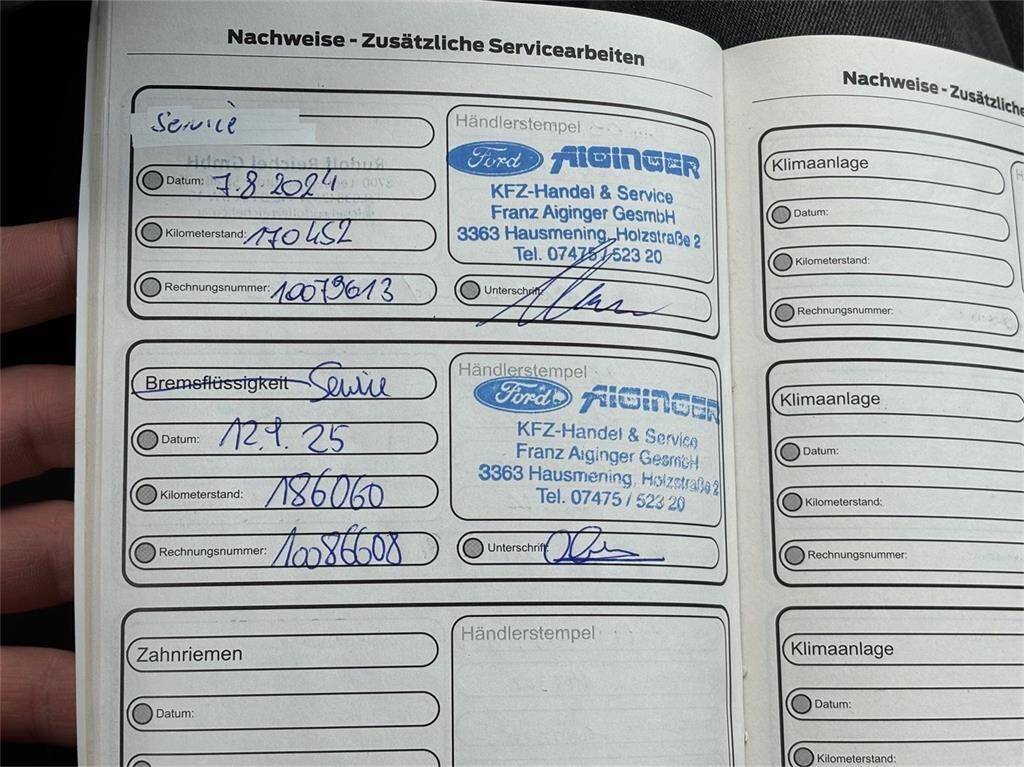 Nachweise - Zusätzliche Servicearbeiten
Service
Datum: 7.8.2024
Kilometerstand: 170452
Rechnungsnummer: 10079613
Händlerstempel
Ford AIGINGER
KFZ-Handel & Service
Franz Aiginger GesmbH
3363 Hausmening, Holzstraße 2
Tel. 07475 / 523 20
Unterschrift
Bremsflüssigkeit Service
Datum: 12.9.25
Kilometerstand: 186060
Rechnungsnummer: 10086608
Händlerstempel
Ford AIGINGER
KFZ-Handel & Service
Franz Aiginger GesmbH
3363 Hausmening, Holzstraße 2
Tel. 07475 / 523 20
Unterschrift
Zahnriemen
Datum:
Händlerstempel
Nachweise - Zusätzliche
Klimaanlage
Datum:
Kilometerstand:
Rechnungsnummer:
Klimaanlage
Datum:
Kilometerstand:
Rechnungsnummer:
Klimaanlage
Datum:
Kilometerstand: